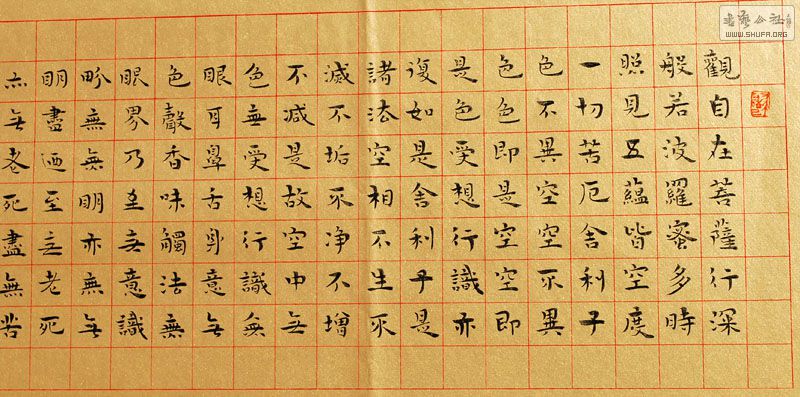 觀自在菩薩行深
般若波羅蜜多時
照見五蘊皆空度
一切苦厄舍利子
色不異空空不異
色色即是空空即
是色受想行識亦
復如是舍利子是
諸法空相不生不
滅不垢不净不增
不減是故空中無
色無受想行識無
眼耳鼻舌身意無
色聲香味觸法無
眼界乃至無意識
畍無無明亦無無
明盡迺至無老死
亦無老死盡無苦
书艺公社
WWW.SHUFA.ORG